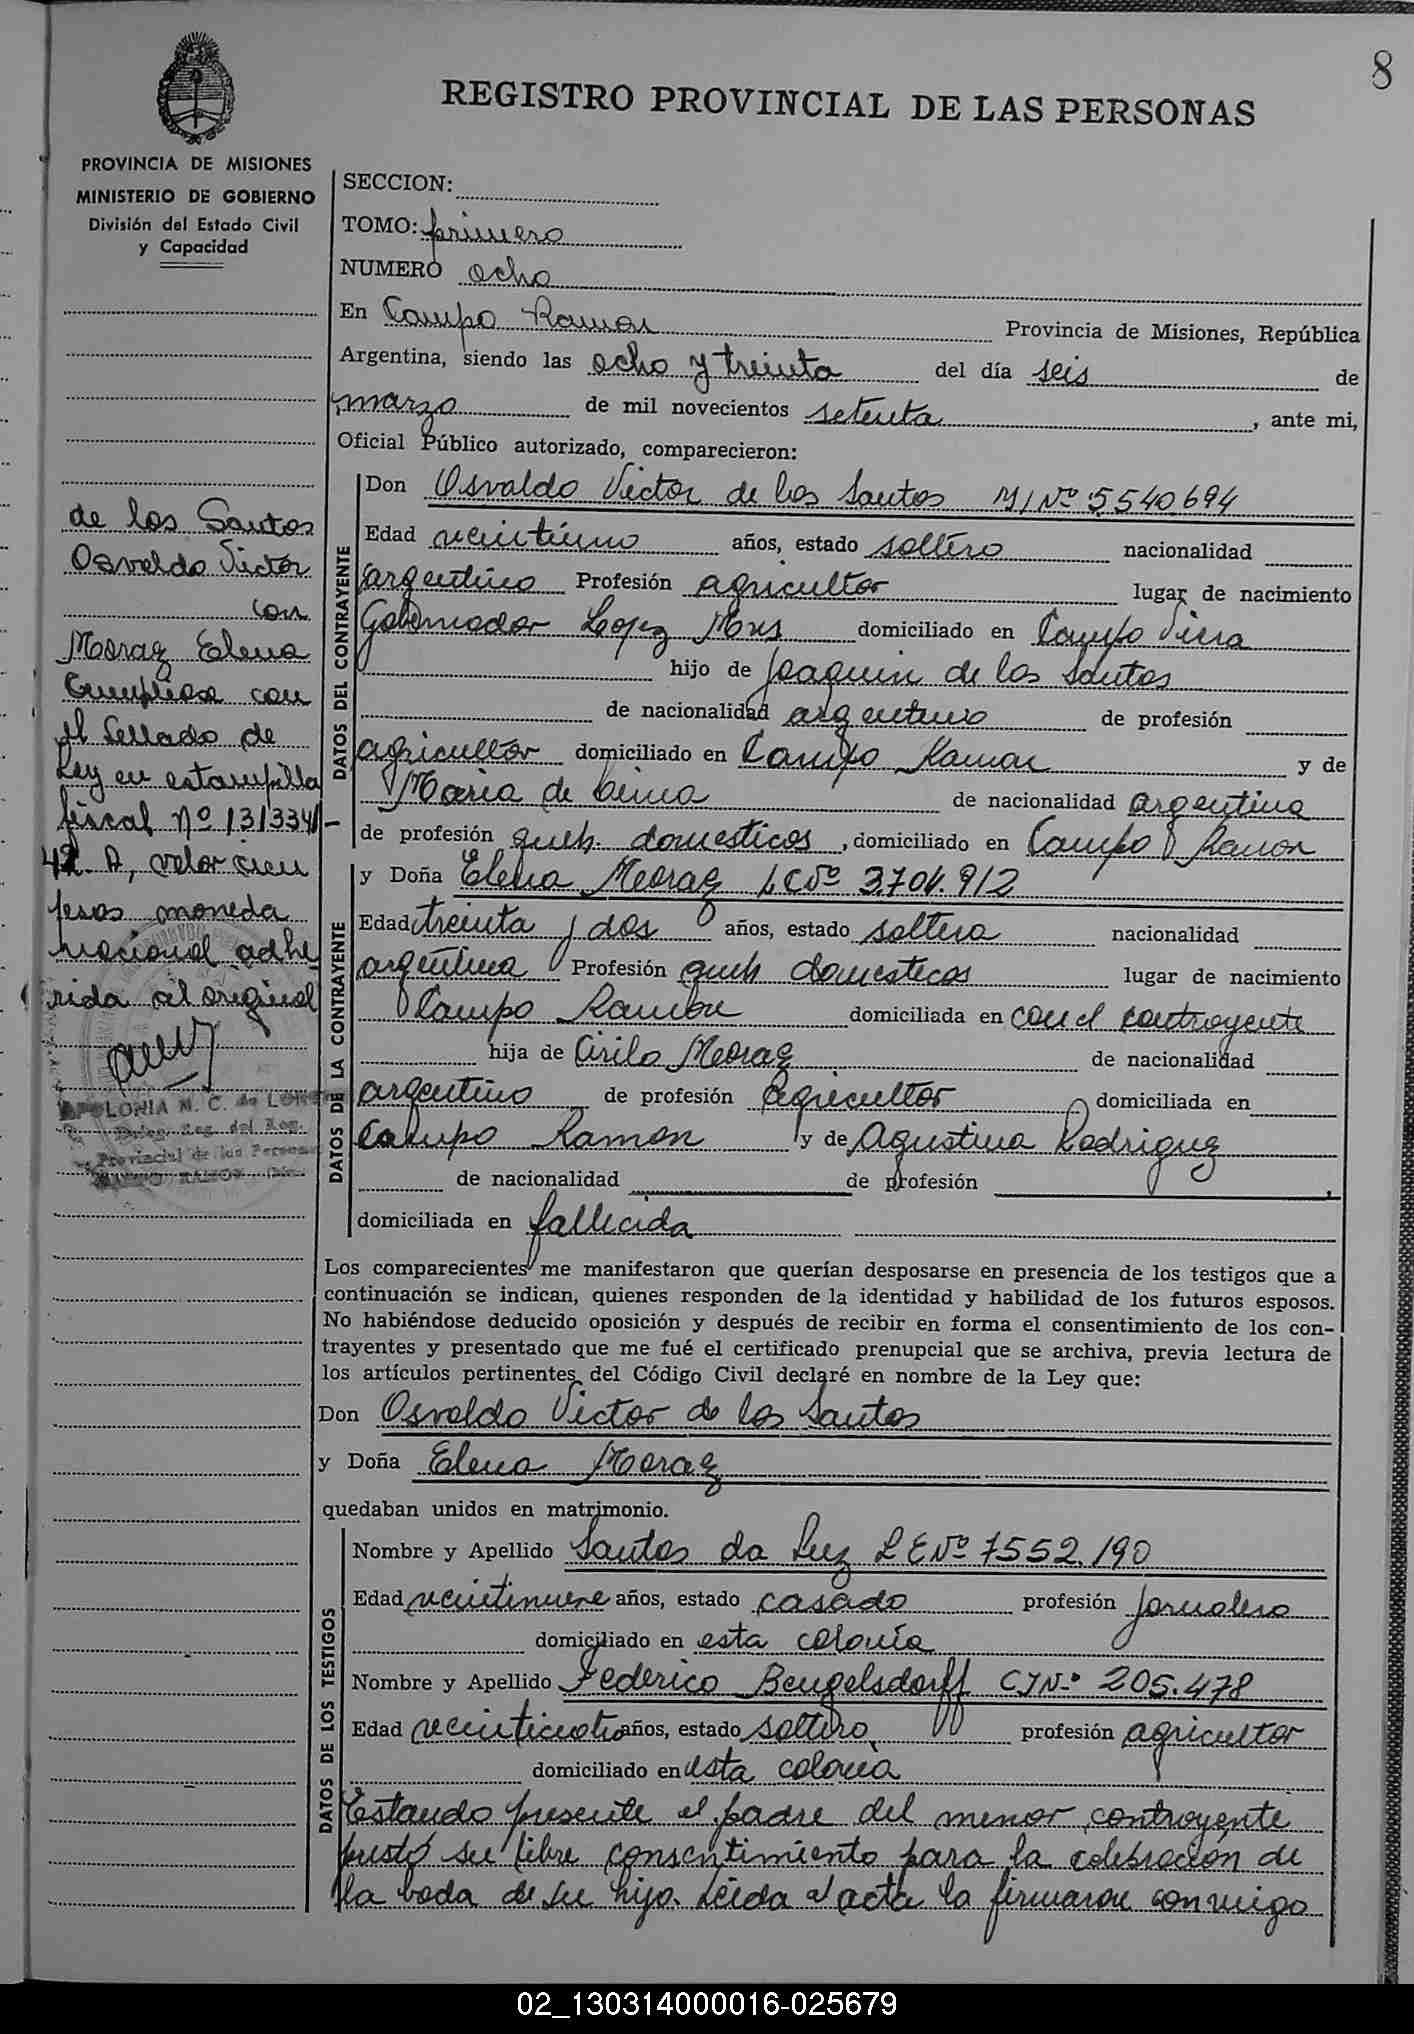 8
REGISTRO PROVINCIAL DE LAS PERSONAS
PROVINCIA DE MISIONES
MINISTERIO DE GOBIERNO
División del Estado Civil
y Capacidad
de los Santos
Osvaldo Victor
con
Moraz Elena
Cumplese con
el Sellado de
Ley en estampilla
fiscal Nº 131334
42. A, valor cien
pesos moneda
nacional adhe
rida al original
APOLONIA N. C. de
Deleg. Reg. del Reg.
Provincial de las Personas
CAMPO RAMON
SECCION:
TOMO: primero
NUMERO ocho
En Campo Ramon Provincia de Misiones, República
Argentina, siendo las ocho y treinta del día seis de
marzo de mil novecientos setenta, ante mi,
Oficial Público autorizado, comparecieron:
DATOS DEL CONTRAYENTE
Don Osvaldo Victor de los Santos M/Nº 5540694
Edad veintiuno años, estado soltero nacionalidad
argentino Profesión agricultor lugar de nacimiento
Gobernador Lopez domiciliado en Campo Viera
hijo de Joaquin de los Santos
de nacionalidad argentino de profesión
agricultor domiciliado en Campo Ramon y de
Maria de de nacionalidad argentina
de profesión queh. domesticos, domiciliado en Campo Ramon
DATOS DE LA CONTRAYENTE
y Doña Elena Moraz LCNº 3.704.912
Edad treinta y dos años, estado soltera nacionalidad
argentina Profesión queh domesticos lugar de nacimiento
Campo Ramon domiciliada en con el contrayente
hija de Cirilo Moraz de nacionalidad
argentino de profesión agricultor domiciliada en
Campo Ramon y de Agustina Rodriguez
de nacionalidad de profesión
domiciliada en fallecida
Los comparecientes me manifestaron que querían desposarse en presencia de los testigos que a
continuación se indican, quienes responden de la identidad y habilidad de los futuros esposos.
No habiéndose deducido oposición y después de recibir en forma el consentimiento de los con-
trayentes y presentado que me fué el certificado prenupcial que se archiva, previa lectura de
los artículos pertinentes del Código Civil declaré en nombre de la Ley que:
Don Osvaldo Victor de los Santos
y Doña Elena Moraz
quedaban unidos en matrimonio.
DATOS DE LOS TESTIGOS
Nombre y Apellido Santos da Luz LENº 7552.190
Edad veintinueve años, estado casado profesión jornalero
domiciliado en esta colonia
Nombre y Apellido Federico Bengelsdorff CINº 205.478
Edad años, estado soltero profesión agricultor
domiciliado en esta colonia
Estando presente el padre del menor contrayente
prestó su libre consentimiento para la celebración de
la boda de su hijo. Leida el acta la firmaron conmigo
02_130314000016-025679